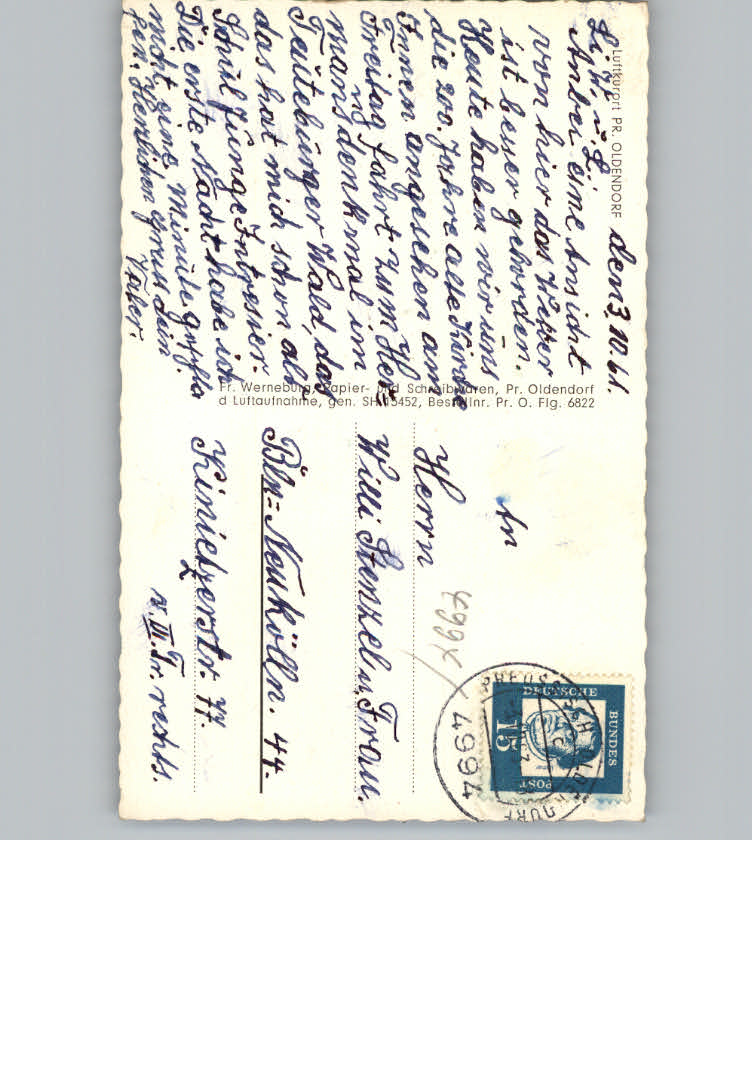 Luftkurort PR. OLDENDORF
den 3.10.61.
Li. W. u. L.
Anbei eine Ansicht
von hier das Wetter
ist besser geworden.
Heute haben wir uns
die 200. Jahre alte Kirche
Innen angesehen am
Freitag fahrt zum Her-
manns denkmal im
Teuteburger Wald, das
das hat mich schon als
Schul Junge Intresier.
Die erste Nacht habe ich
nicht eine Minute geschla
fen. Herzlichen gruss Dein
Vater.
Fr. Werneburg, Papier- und Schreibwaren, Pr. Oldendorf
d Luftaufnahme, gen. SH 15452, Bestellnr. Pr. O. Flg. 6822
An
Herrn
Willi Stenzel u. Frau.
Bln=Neukölln. 44.
Kinietzerstr.
III. Tr. rechts.
4994
DEUTSCHE
BUNDES
POST
15
4994